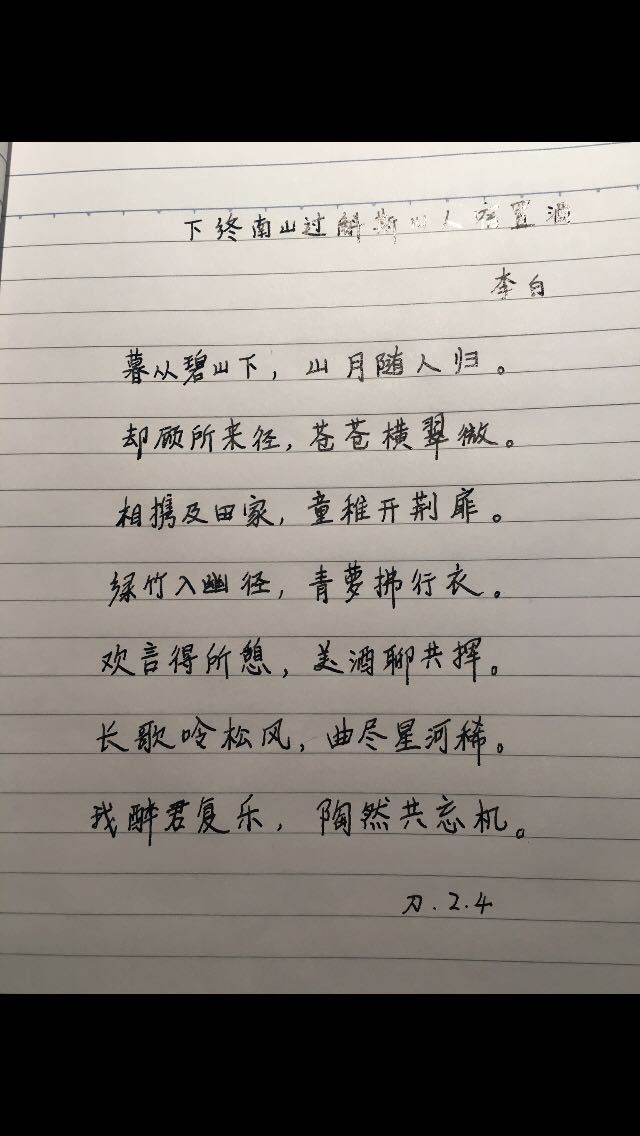 下终南山过斛斯山人宿置酒
李白
暮从碧山下，山月随人归。
却顾所来径，苍苍横翠微。
相携及田家，童稚开荆扉。
绿竹入幽径，青萝拂行衣。
欢言得所憩，美酒聊共挥。
长歌吟松风，曲尽星河稀。
我醉君复乐，陶然共忘机。
刀.2.4